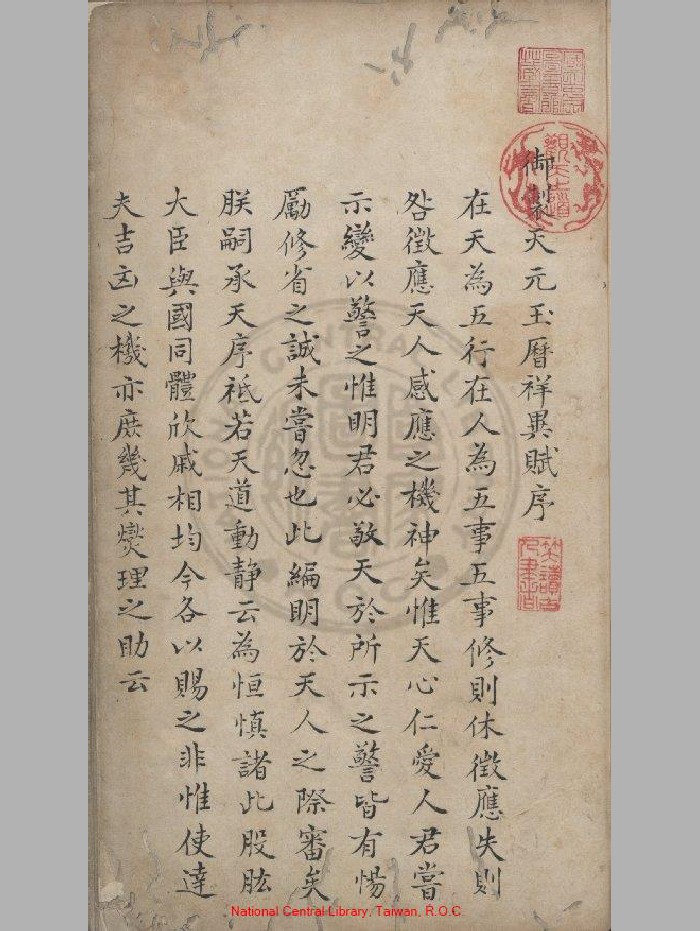 御製天元玉曆祥異賦序
在天為五行在人為五事五事修則休徵應失則
咎徵應天人感應之機神矣惟天心仁愛人君嘗
示變以警之惟明君必敬天於所示之警皆有惕
勵修省之誠未嘗忽也此編明於天人之際審矣
朕嗣承天序祗若天道動靜云為恒慎諸此股肱
大臣與國同體欣戚相均今各以賜之非惟使達
夫吉凶之機亦庶幾其爕理之助云
National Central Library, Taiwan, R.O.C